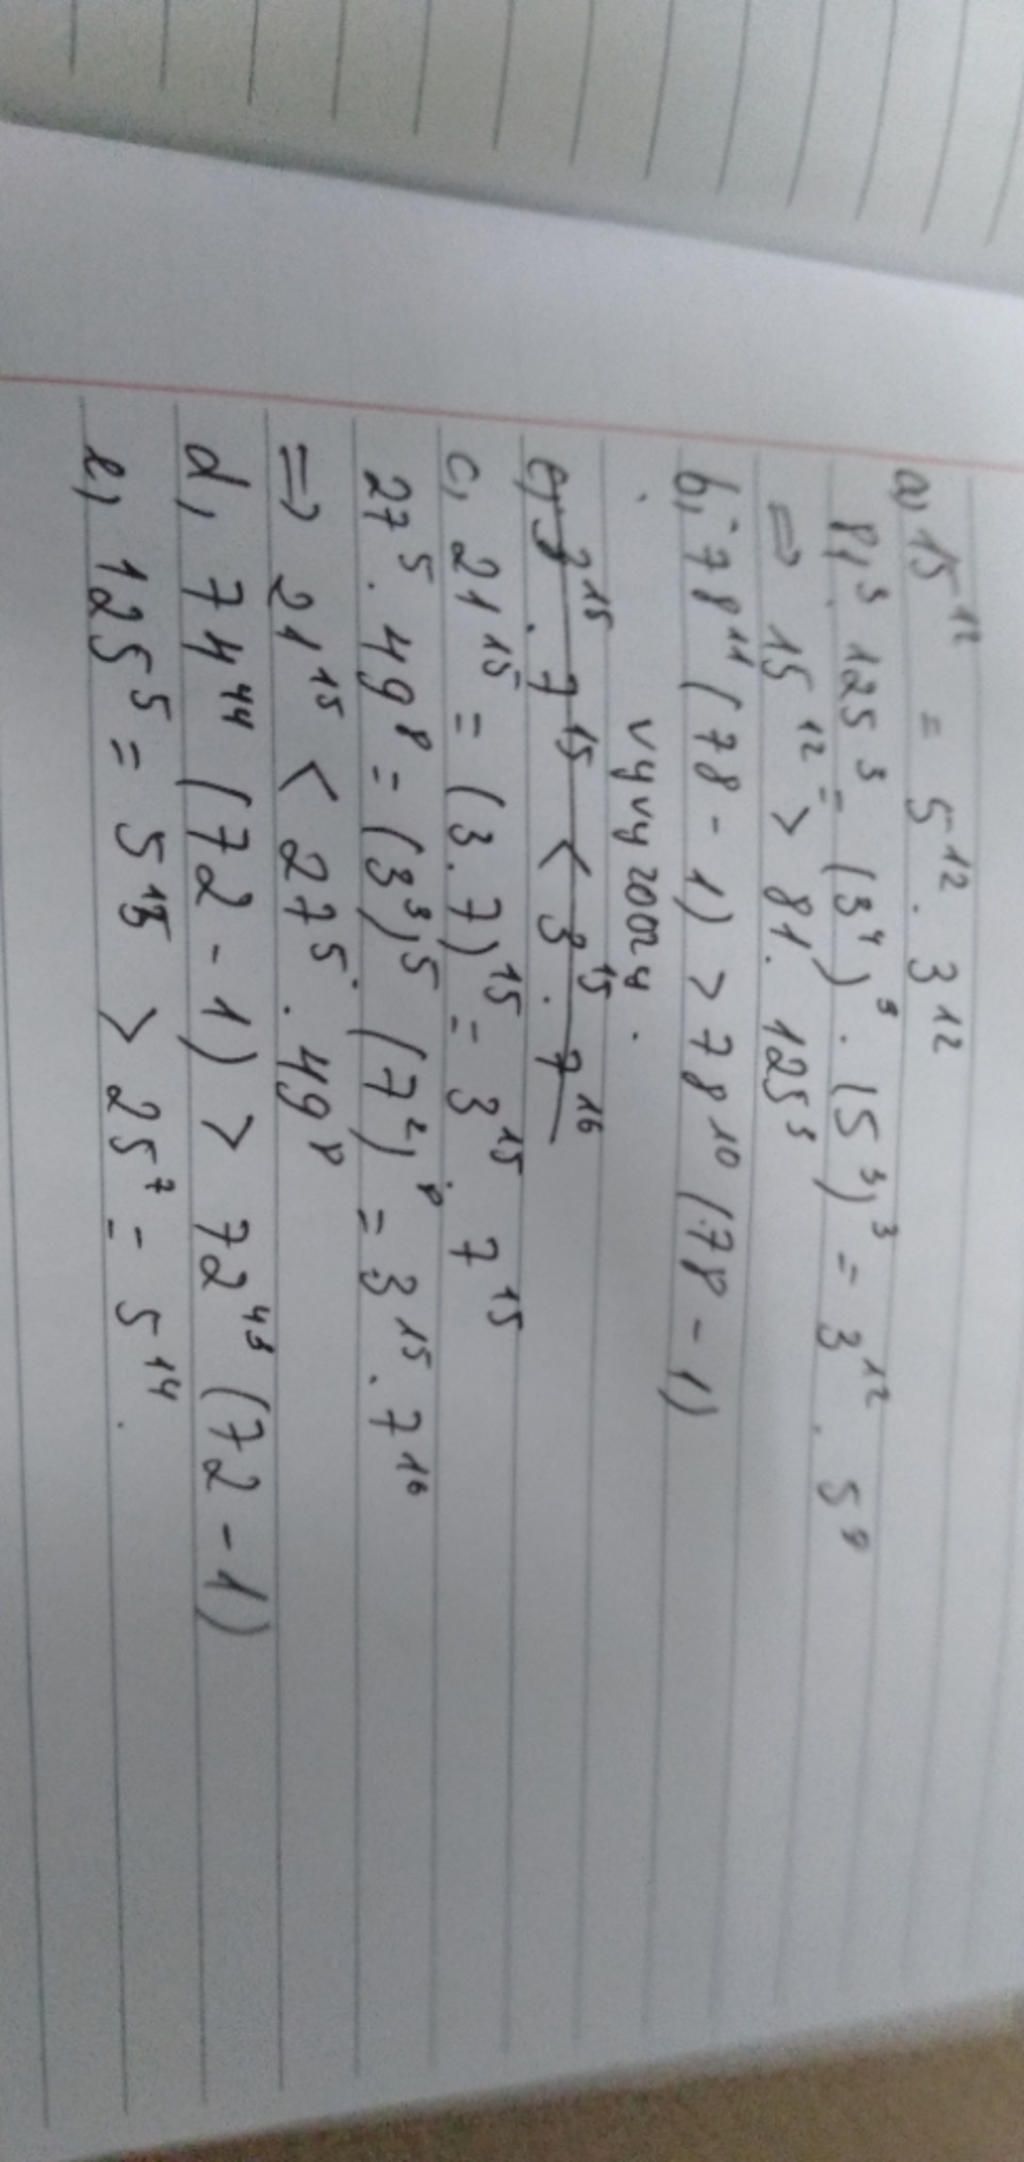 a, 15^12 = 5^12 . 3^12
81^3 . 125^3 = (3^4)^3 . (5^3)^3 = 3^12 . 5^9
=> 15^12 > 81. 125^3
b, 78^11 (78 - 1) > 78^10 (78 - 1)
vyvy2002y.
c, 3^15 . 7^15 < 3^15 . 7^16
c, 21^15 = (3.7)^15 = 3^15 . 7^15
27^5 . 49^8 = (3^3)^5 (7^2)^8 = 3^15 . 7^16
=> 21^15 < 27^5 . 49^8
d, 74^44 (72 - 1) > 72^43 (72 - 1)
e, 125^5 = 5^15 > 25^7 = 5^14.